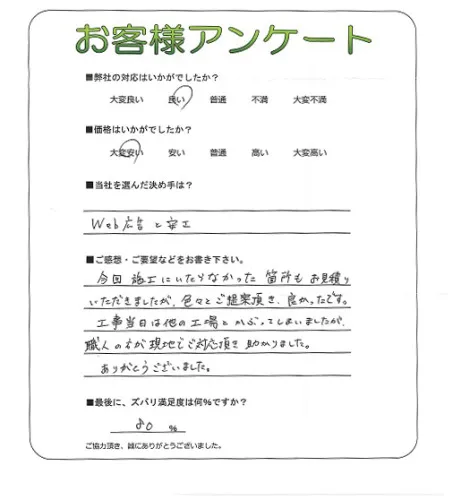 お客様アンケート
■弊社の対応はいかがでしたか？
大変良い 良い 普通 不満 大変不満
■価格はいかがでしたか？
大変安い 安い 普通 高い 大変高い
■当社を選んだ決め手は？
Web広告と安工
■ご感想・ご要望などをお書き下さい。
今回施工にいたらなかった箇所もお見積り
いただきましたが、色々とご提案頂き、良かったです。
工事当日は他の工場とかぶってしまいましたが、
職人の方が現地でご対応頂き助かりました。
ありがとうございました。
■最後に、ズバリ満足度は何%ですか？
80 %
ご協力頂き、誠にありがとうございました。